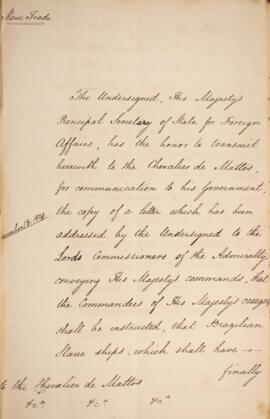 Slave Trade
The Undersigned, His Majesty's
Principal Secretary of State for Foreign
Affairs, has the honor to transmit
herewith to the Chevalier de Mattos,
for communication to his Government,
the copy of a letter which has been
addressed by the Undersigned to the
Lords Commissioners of the Admiralty,
conveying His Majesty's commands, that
the Commanders of His Majesty's cruizers
shall be instructed, that Brazilian
Slave ships, which shall have
finally
to the Chevalier de Mattos
&ca &ca &ca